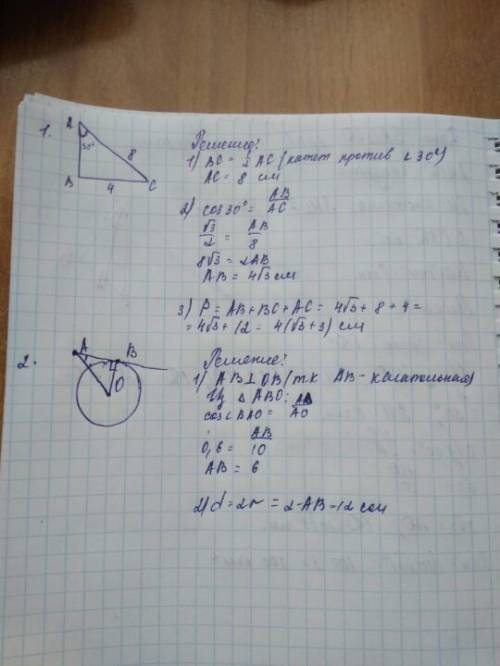 1.
A
30°
8
B
4
C
Решение:
1) BC = ½ AC (катет против ∠30°)
AC = 8 см
2) cos30° = AB/AC
√3/2 = AB/8
8√3 = 2AB
AB = 4√3 см
3) P = AB + BC + AC = 4√3 + 8 + 4 =
= 4√3 + 12 = 4(√3 + 3) см
2.
A
B
O
Решение:
1) AB ⊥ OB (тк AB - касательная)
Из △ABO:
cos∠BAO = AB/AO
0,6 = AB/10
AB = 6
2) d = 2r = 2·AB = 12 см